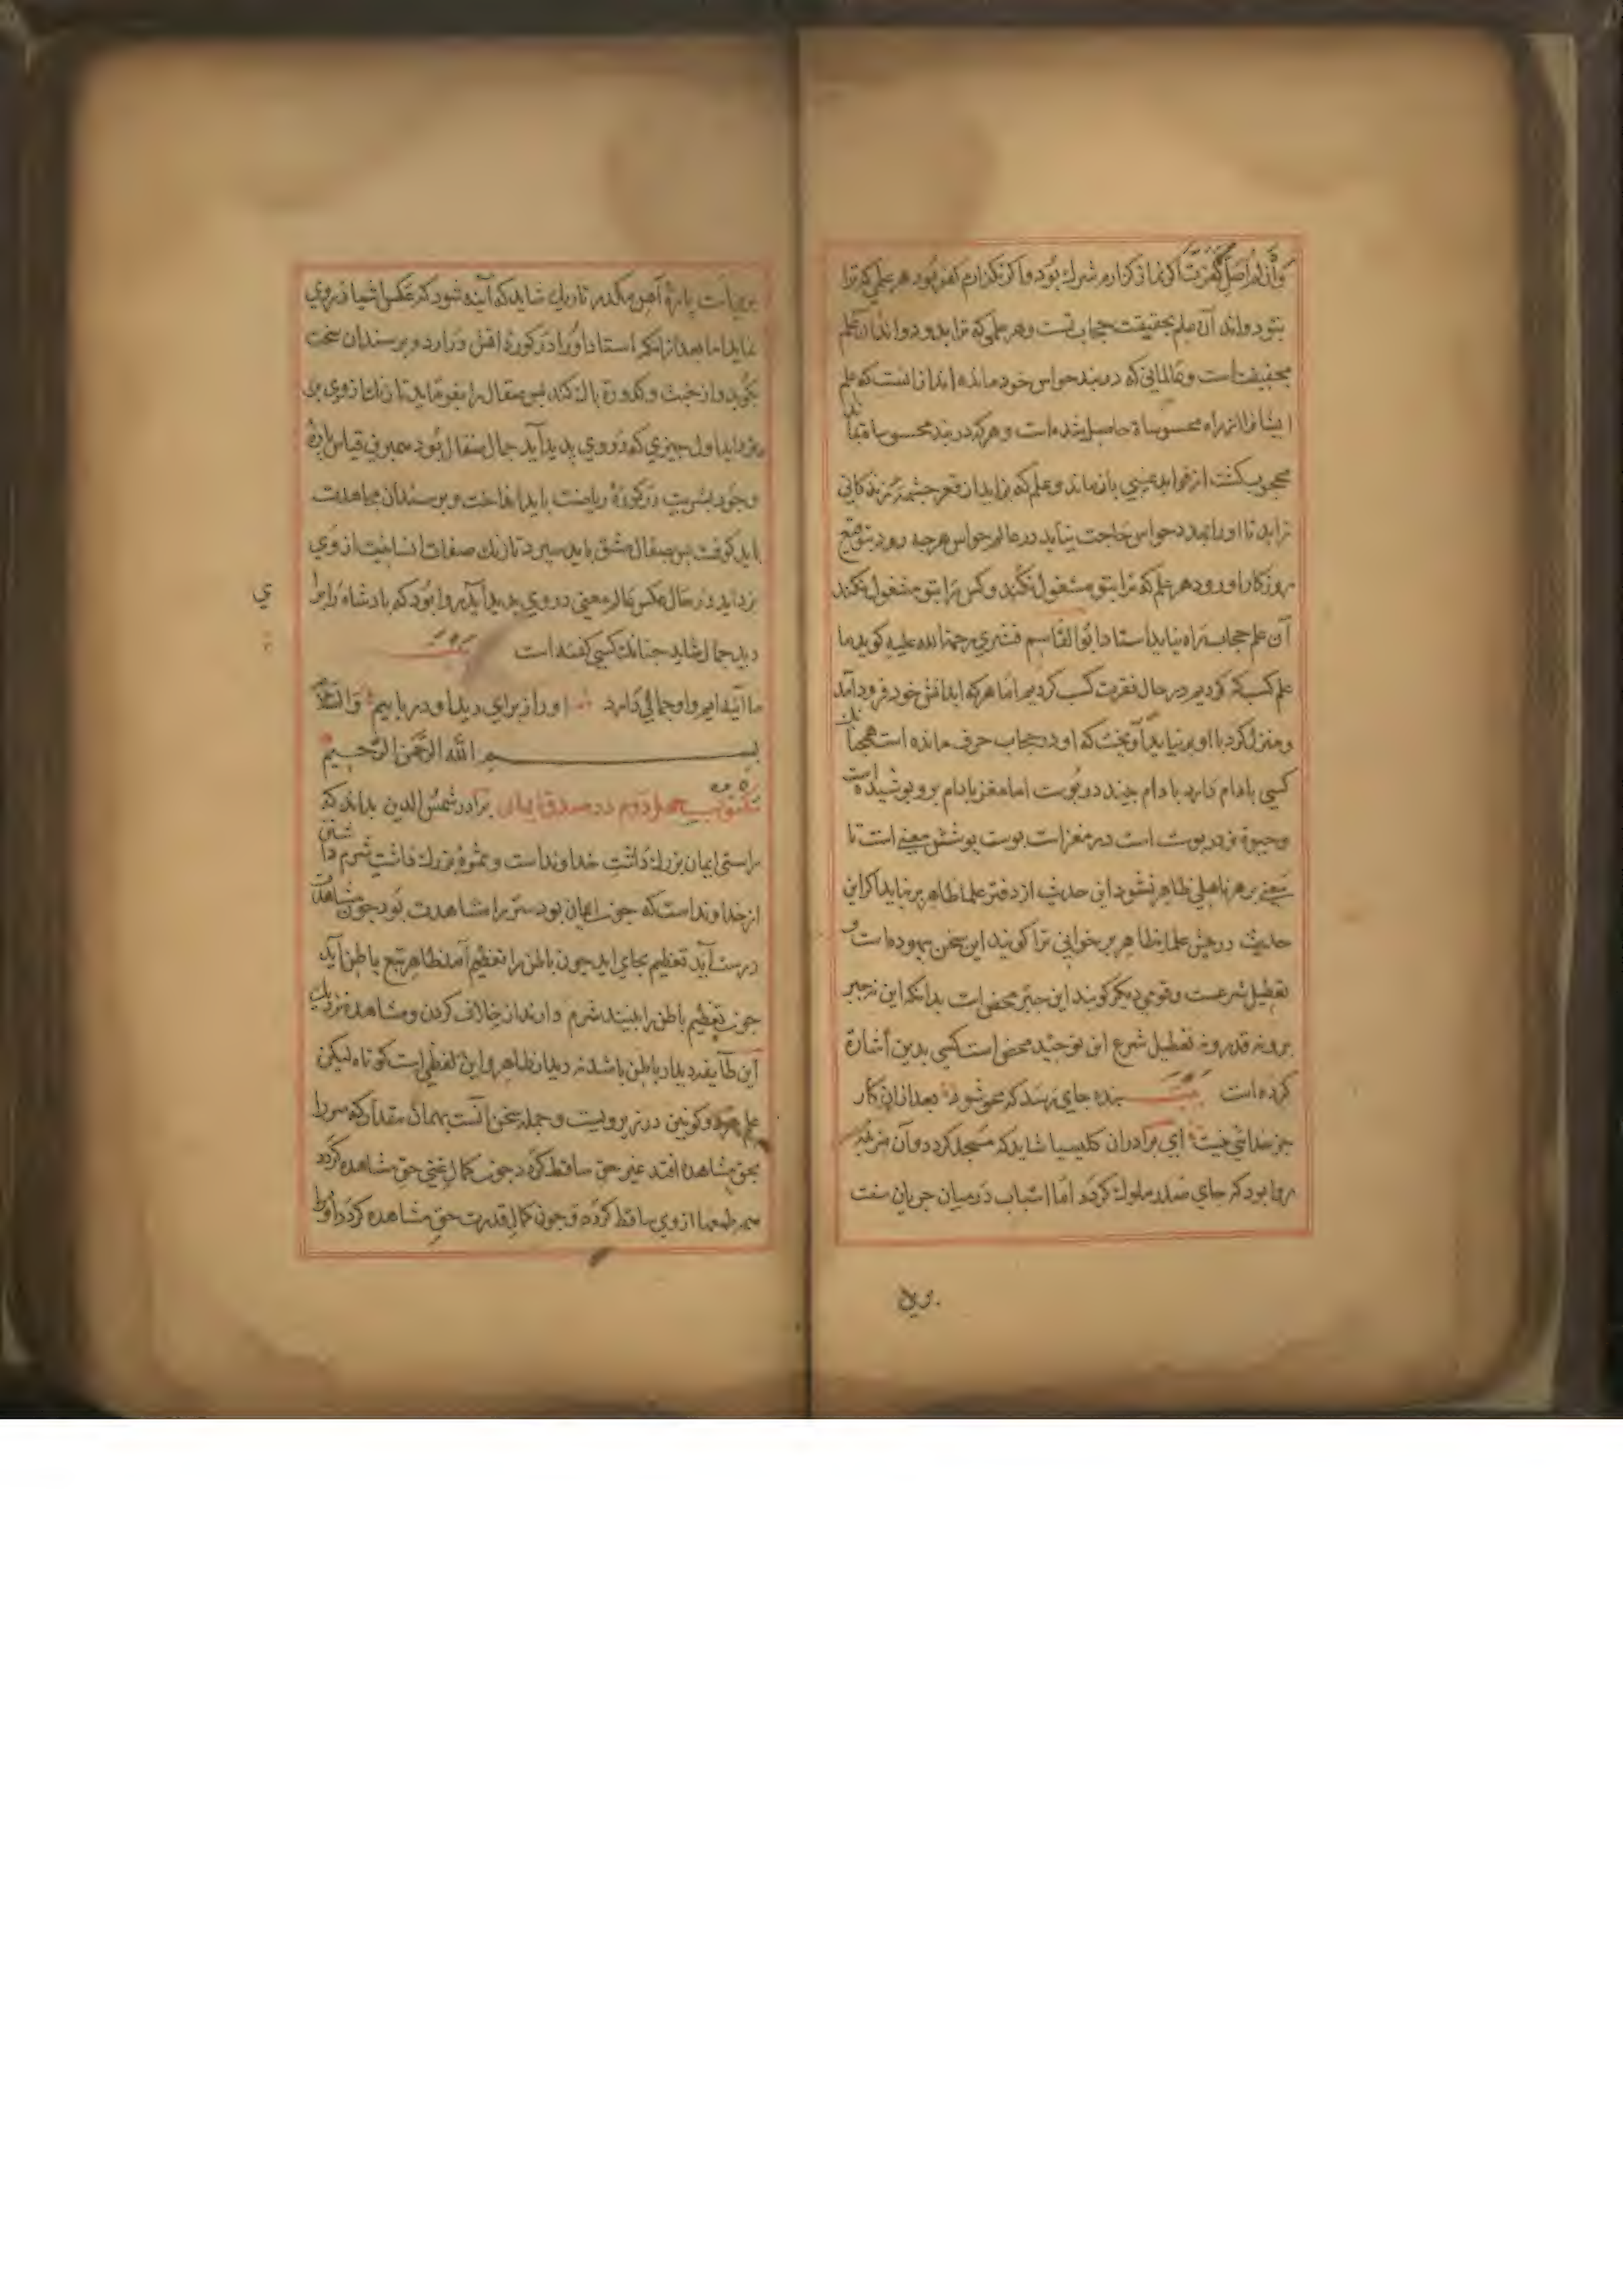 وَاِنْ لَمْ اُصَلِّ كَفَرْتُ اگر نماز گزارم شرك بُود و اگر نگزارم كفر بُود هر علمی كه ترا
بتو دواند آن علم بحقیقت حجاب تست و هر علمی كه ترا بدو دواند آن علم
بحقیقت است و عالمانی كه در بند حواس خود مانده اند از انست كه علم
ایشانرا از راه محسوسات حاصل شده است و هركه در بند محسوسات بماند
محجوب گشت از فواید غیبی باز ماند و علم كه بزاید از قعر چشمهٔ زندگانی
زاید تا او را بمدد حواس حاجت نیاید در عالم حواس هرچه رود بتوقیع
روزگار او رود هر علم كه ترا بتو مشغول نكند و كس را بتو مشغول نكند
آن علم حجاب راه نیاید استاد ابوالقاسم قشیری رحمة الله علیه گوید ما
علم كسب كه كردیم در حال فقرت كسب كردیم اما هركه اینا نقش خود فرود آمد
و منزل كرد با او بر نیاید آویخت كه او در حجاب حرف مانده است همچنانكه
كسی بادام دارد بادام چند در پوست اما مغز بادام برو پوشیده است
و حیوة نه در پوست است در مغز است پوست پوشش معنی است تا
معنی بر هر نااهلی ظاهر نشود این حدیث از دفتر علما ظاهر برنیاید اگر این
حدیث در پیش علما ظاهر بر خوانی ترا گویند این سخن بیهوده است و
تعطیل شرعست و قومی دیگر گویند این جبر محض است بدانكه این نه جبر
بود نه قدر و نه تعطیل شرع این توحید محض است كسی بدین اشارة
كرده است بیت بنده جای رسد كه محو شود بعد ازان كار
جز خدائی نیست ای برادران كلیسیا شاید كه مسجد گردد و آن مزبله
روا بود كه جای صدر ملوك گردد اما اسباب در میان جریان سنت

پارهٔ آهن مكدر تاریك شاید كه آینه شود كه عكس اشیا در وی
نماید اما بعد ازانكه استاد او را در كورهٔ آتش در آرد و بر سندان سخت
بكوبد و از خبث و كدورة پاك كند پس صقال را بفرماید تا زنگ از وی بر
اول چیزی كه در وی پدید آید جمال صقال بود همبرین قیاس پارهٔ
وجود بشریت در كورهٔ ریاضت باید انداخت و بر سندان مجاهدت
باید كوفت پس بصقال عشق باید سپرد تا زنگ صفات انسانیت از وی
بزداید در حال عكس عالم معنی در وی پدید آید روا بود كه پادشاه را برا
دید جمال شاید چنانك كسی گفته است بیت
ما آئینه ایم و او جمالی دارد او را از برای دید او دریابیم والسلام
بسم الله الرحمن الرحیم
مكتوب چهل و دوم در صدق ایمان برادر شمس الدین بداند كه
راستی ایمان بزرگ داشت خداوند است و ثمرهٔ بزرگ داشت شرم داشتن
از خداوند است كه چون ایمان بود ستر را مشاهدت بود چون مشاهدت
درست آید تعظیم بجای آید چون باطن را تعظیم آمد ظاهر تبع باطن آید
چون تعظیم باطن را بیند شرم دارند از خلاف كردن و مشاهده نزدیك
این طایفه دیدار باطن باشد نه دیدار ظاهر و این لفظی است كوتاه لیكن
علم هر دو كونین در زیر ویست و جمله سخن آنست بهمان مقدار كه سر را
بحق مشاهده افتد غیر حق ساقط گردد چون كمال غنی حق مشاهده گردد
همه طمعها از وی ساقط گردد و چون كمال قدرت حق مشاهده گردد او را
ی